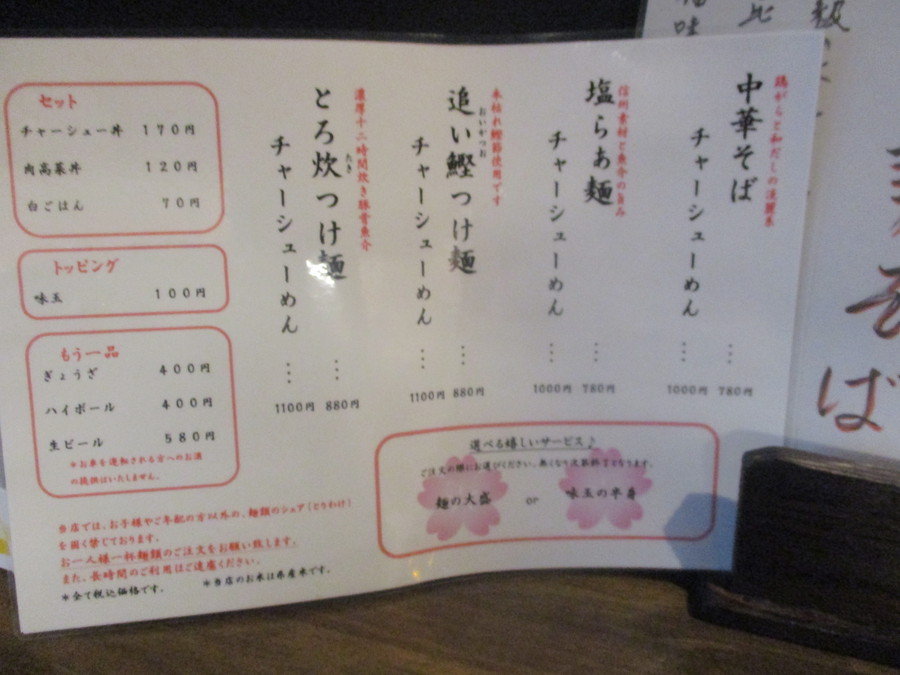 鶏がらと和だしの淡麗系
中華そば … 780円
チャーシューめん … 1000円
信州素材と魚介の旨み
塩らぁ麺 … 780円
チャーシューめん … 1000円
本枯れ鰹節使用です
追い鰹つけ麺 … 880円
おいがつお
チャーシューめん … 1100円
濃厚十二時間炊き豚骨魚介
とろ炊つけ麺 … 880円
たき
チャーシューめん … 1100円
セット
チャーシュー丼 170円
肉高菜丼 120円
白ごはん 70円
トッピング
味玉 100円
もう一品
ぎょうざ 400円
ハイボール 400円
生ビール 580円
*お車を運転される方へのお酒
の提供はいたしません。
選べる嬉しいサービス♪
ご注文の際にお選びください。無くなり次第終了となります。
麺の大盛 or 味玉の半身
当店では、お子様やご年配の方以外の、麺類のシェア(とりわけ)
を固く禁じております。
お一人様一杯麺類のご注文をお願い致します。
また、長時間のご利用はご遠慮ください。
*全て税込価格です。 *当店のお米は県産米です。
そば